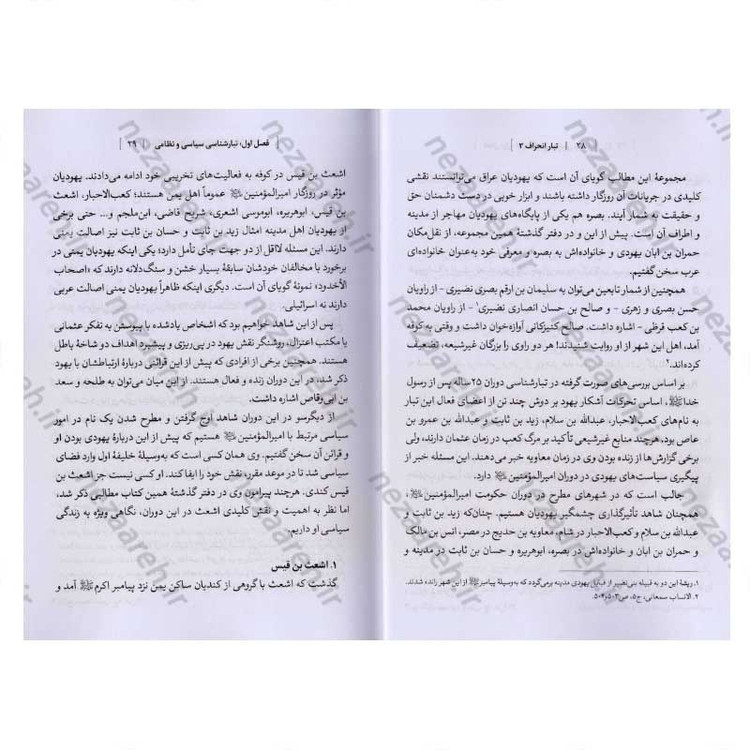 ۲۸ | تبار انحراف ۳
مجموعهٔ این مطالب گویای آن است که یهودیان عراق می‌توانستند نقشی
کلیدی در جریانات آن روزگار داشته باشند و ابزار خوبی در دست دشمنان حق
و حقیقت به شمار آیند. بصره هم یکی از پایگاه‌های یهودیان مهاجر از مدینه
و اطراف آن است. پیش از این و در دفتر گذشتهٔ همین مجموعه، از نقل‌مکان
حمران بن ابان یهودی و خانواده‌اش به بصره و معرفی خود به‌عنوان خانواده‌ای
عرب سخن گفتیم.
همچنین از شمار تابعین می‌توان به سلیمان بن ارقم بصری نضیری – از راویان
حسن بصری و زهری – و صالح بن حسان انصاری نضیری۱ – از راویان محمد
بن کعب قرظی – اشاره داشت. صالح کنیزکانی آوازه‌خوان داشت و وقتی به کوفه
آمد، اهل این شهر از او روایت شنیدند! هر دو راوی را بزرگان غیرشیعه، تضعیف
کرده‌اند.۲
بر اساس بررسی‌های صورت گرفته در تبارشناسی دوران ۲۵ساله پس از رسول
خدا ﷺ، اساس تحرکات آشکار یهود بر دوش چند تن از اعضای فعال این تبار
به‌نام‌های کعب‌الاحبار، عبدالله بن سلام، زید بن ثابت و عبدالله بن عمرو بن
عاص بود، هرچند منابع غیرشیعی تأکید بر مرگ کعب در زمان عثمان دارند، ولی
برخی گزارش‌ها از زنده بودن وی در زمان معاویه خبر می‌دهند. این مسئله خبر از
پیگیری سیاست‌های یهودی در دوران امیرالمؤمنین دارد.
جالب است که در شهرهای مطرح در دوران حکومت امیرالمؤمنین،
همچنان شاهد تأثیرگذاری چشمگیر یهودیان هستیم. چنان‌که زید بن ثابت و
عبدالله بن سلام و کعب‌الاحبار در شام، معاویه بن حدیج در مصر، انس بن مالک
و حمران بن ابان و خانواده‌اش در بصره، ابوهریره و حسان بن ثابت در مدینه و
۱. ریشهٔ این دو به قبیله بنی‌نضیر از قبایل یهودی مدینه برمی‌گردد که به‌وسیلهٔ پیامبر ﷺ از این شهر رانده شدند.
۲. الانساب سمعانی، ج۵، ص۵۰۳و۵۰۴.
فصل اول: تبارشناسی سیاسی و نظامی | ۲۹
اشعث بن قیس در کوفه به فعالیت‌های تخریبی خود ادامه می‌دادند. یهودیان
مؤثر در روزگار امیرالمؤمنین عموماً اهل یمن هستند؛ کعب‌الاحبار، اشعث
بن قیس، ابوهریره، ابوموسی اشعری، شریح قاضی، ابن‌ملجم و... حتی برخی
از یهودیان اهل مدینه امثال زید بن ثابت و حسان بن ثابت نیز اصالت یمنی
دارند. این مسئله لااقل از دو جهت جای تأمل دارد؛ یکی اینکه یهودیان یمنی در
برخورد با مخالفان خودشان سابقهٔ بسیار خشن و سنگ‌دلانه دارند که «اصحاب
الأخدود» نمونهٔ گویای آن است. دیگری اینکه ظاهراً یهودیان یمنی اصالت عربی
دارند نه اسرائیلی.
پس از این شاهد خواهیم بود که اشخاص یادشده با پیوستن به تفکر عثمانی
یا مکتب اعتزال، روشنگر نقش یهود در پی‌ریزی و پیشبرد اهداف دو شاخهٔ باطل
هستند. همچنین برخی از افرادی که پیش از این قرائنی دربارهٔ ارتباطشان با یهود
ذکر شد، در این دوران زنده و فعال هستند. از این میان می‌توان به طلحه و سعد
بن ابی‌وقاص اشاره داشت.
از دیگرسو در این دوران شاهد اوج گرفتن و مطرح شدن یک نام در امور
سیاسی مرتبط با امیرالمؤمنین هستیم که پیش از این دربارهٔ یهودی بودن او
و قرائن آن سخن گفتیم. وی همان کسی است که به‌وسیلهٔ خلیفهٔ اول وارد فضای
سیاسی شد تا در موعد مقرر، نقش خود را ایفا کند. او کسی نیست جز اشعث بن
قیس کندی. هرچند پیرامون وی در دفتر گذشتهٔ همین کتاب مطالبی ذکر شد،
اما نظر به اهمیت و نقش کلیدی اشعث در این دوران، نگاهی ویژه به زندگی
سیاسی او داریم.
۱. اشعث بن قیس
گذشت که اشعث با گروهی از کندیان ساکن یمن نزد پیامبر اکرم ﷺ آمد و
nezaareh.ir